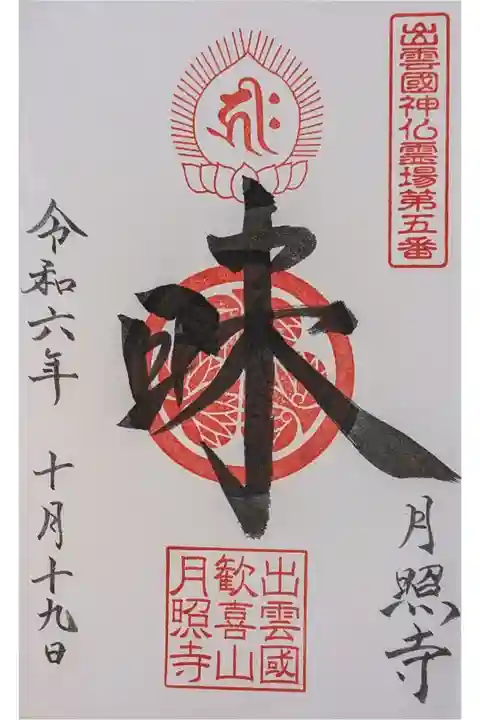 出雲國神仏霊場第五番
昧
月照寺
出雲國
歓喜山
月照寺
令和六年 十月十九日